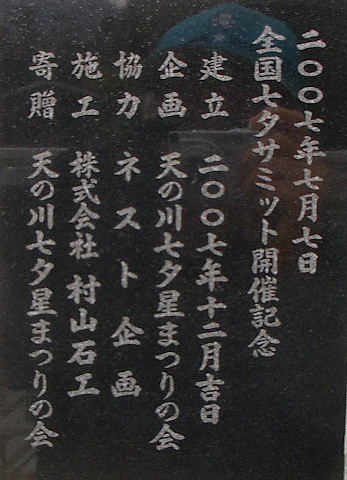 二〇〇七年七月七日
全国七夕サミット開催記念
建立 二〇〇七年十二月吉日
企画 天の川七夕星まつりの会
協力 ネスト企画
施工 株式会社 村山石工
寄贈 天の川七夕星まつりの会